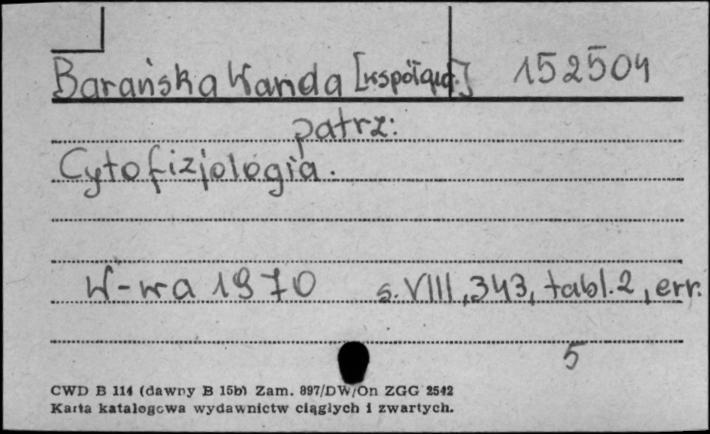 Barańska Wanda [współaut.] 152504
patrz:
Cytofizjologia.
W-wa 1970 s. VIII, 343, tabl. 2, err.
5
CWD B 114 (dawny B 15b) Zam. 897/DW/On ZGG 2542
Karta katalogowa wydawnictw ciągłych i zwartych.